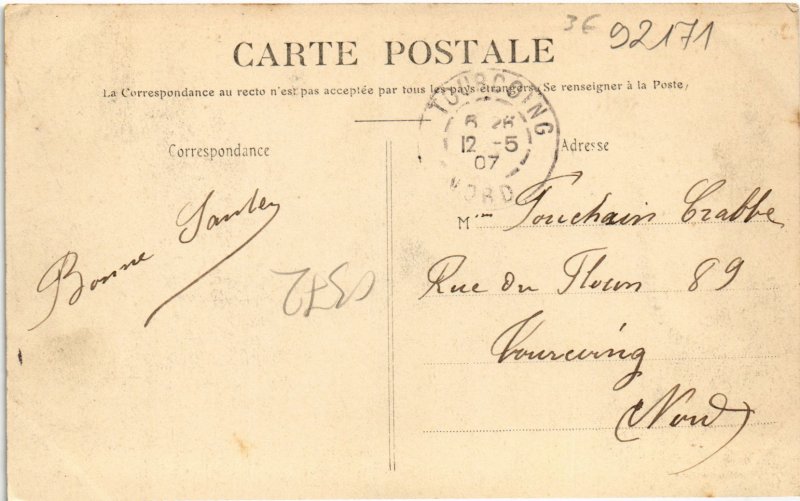 3€ 92171
CARTE POSTALE
La Correspondance au recto n'est pas acceptée par tous les pays étrangers (Se renseigner à la Poste)
TOURCOING
12 -5
07
NORD
Correspondance
Adresse
Bonne Santée
M me Pouchain Crabbe
Rue du Flocon 89
Tourcoing
(Nord)